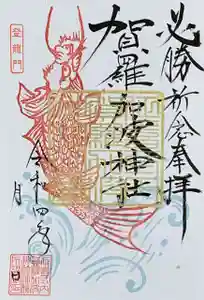 必勝祈念奉拝
賀羅加波神社
登龍門
令和四年
月
日